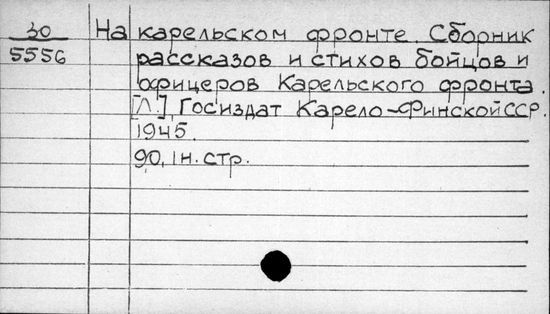 30
5556
На карельском фронте. Сборник
рассказов и стихов бойцов и
офицеров Карельского фронта.
[Л.], Госиздат Карело-Финской ССР.
1945.
90, 1н. стр.